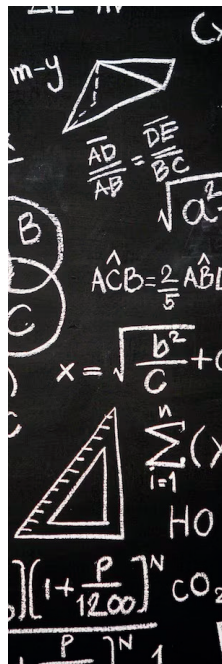 m-y
AD/AB = DE/BC
√a²
B
C
AĈB = 2/5 AB̂
x = √(b²/C) +
n
∑(
i=1
HO
][1+P/1200]^N CO₂
P ]^N 1